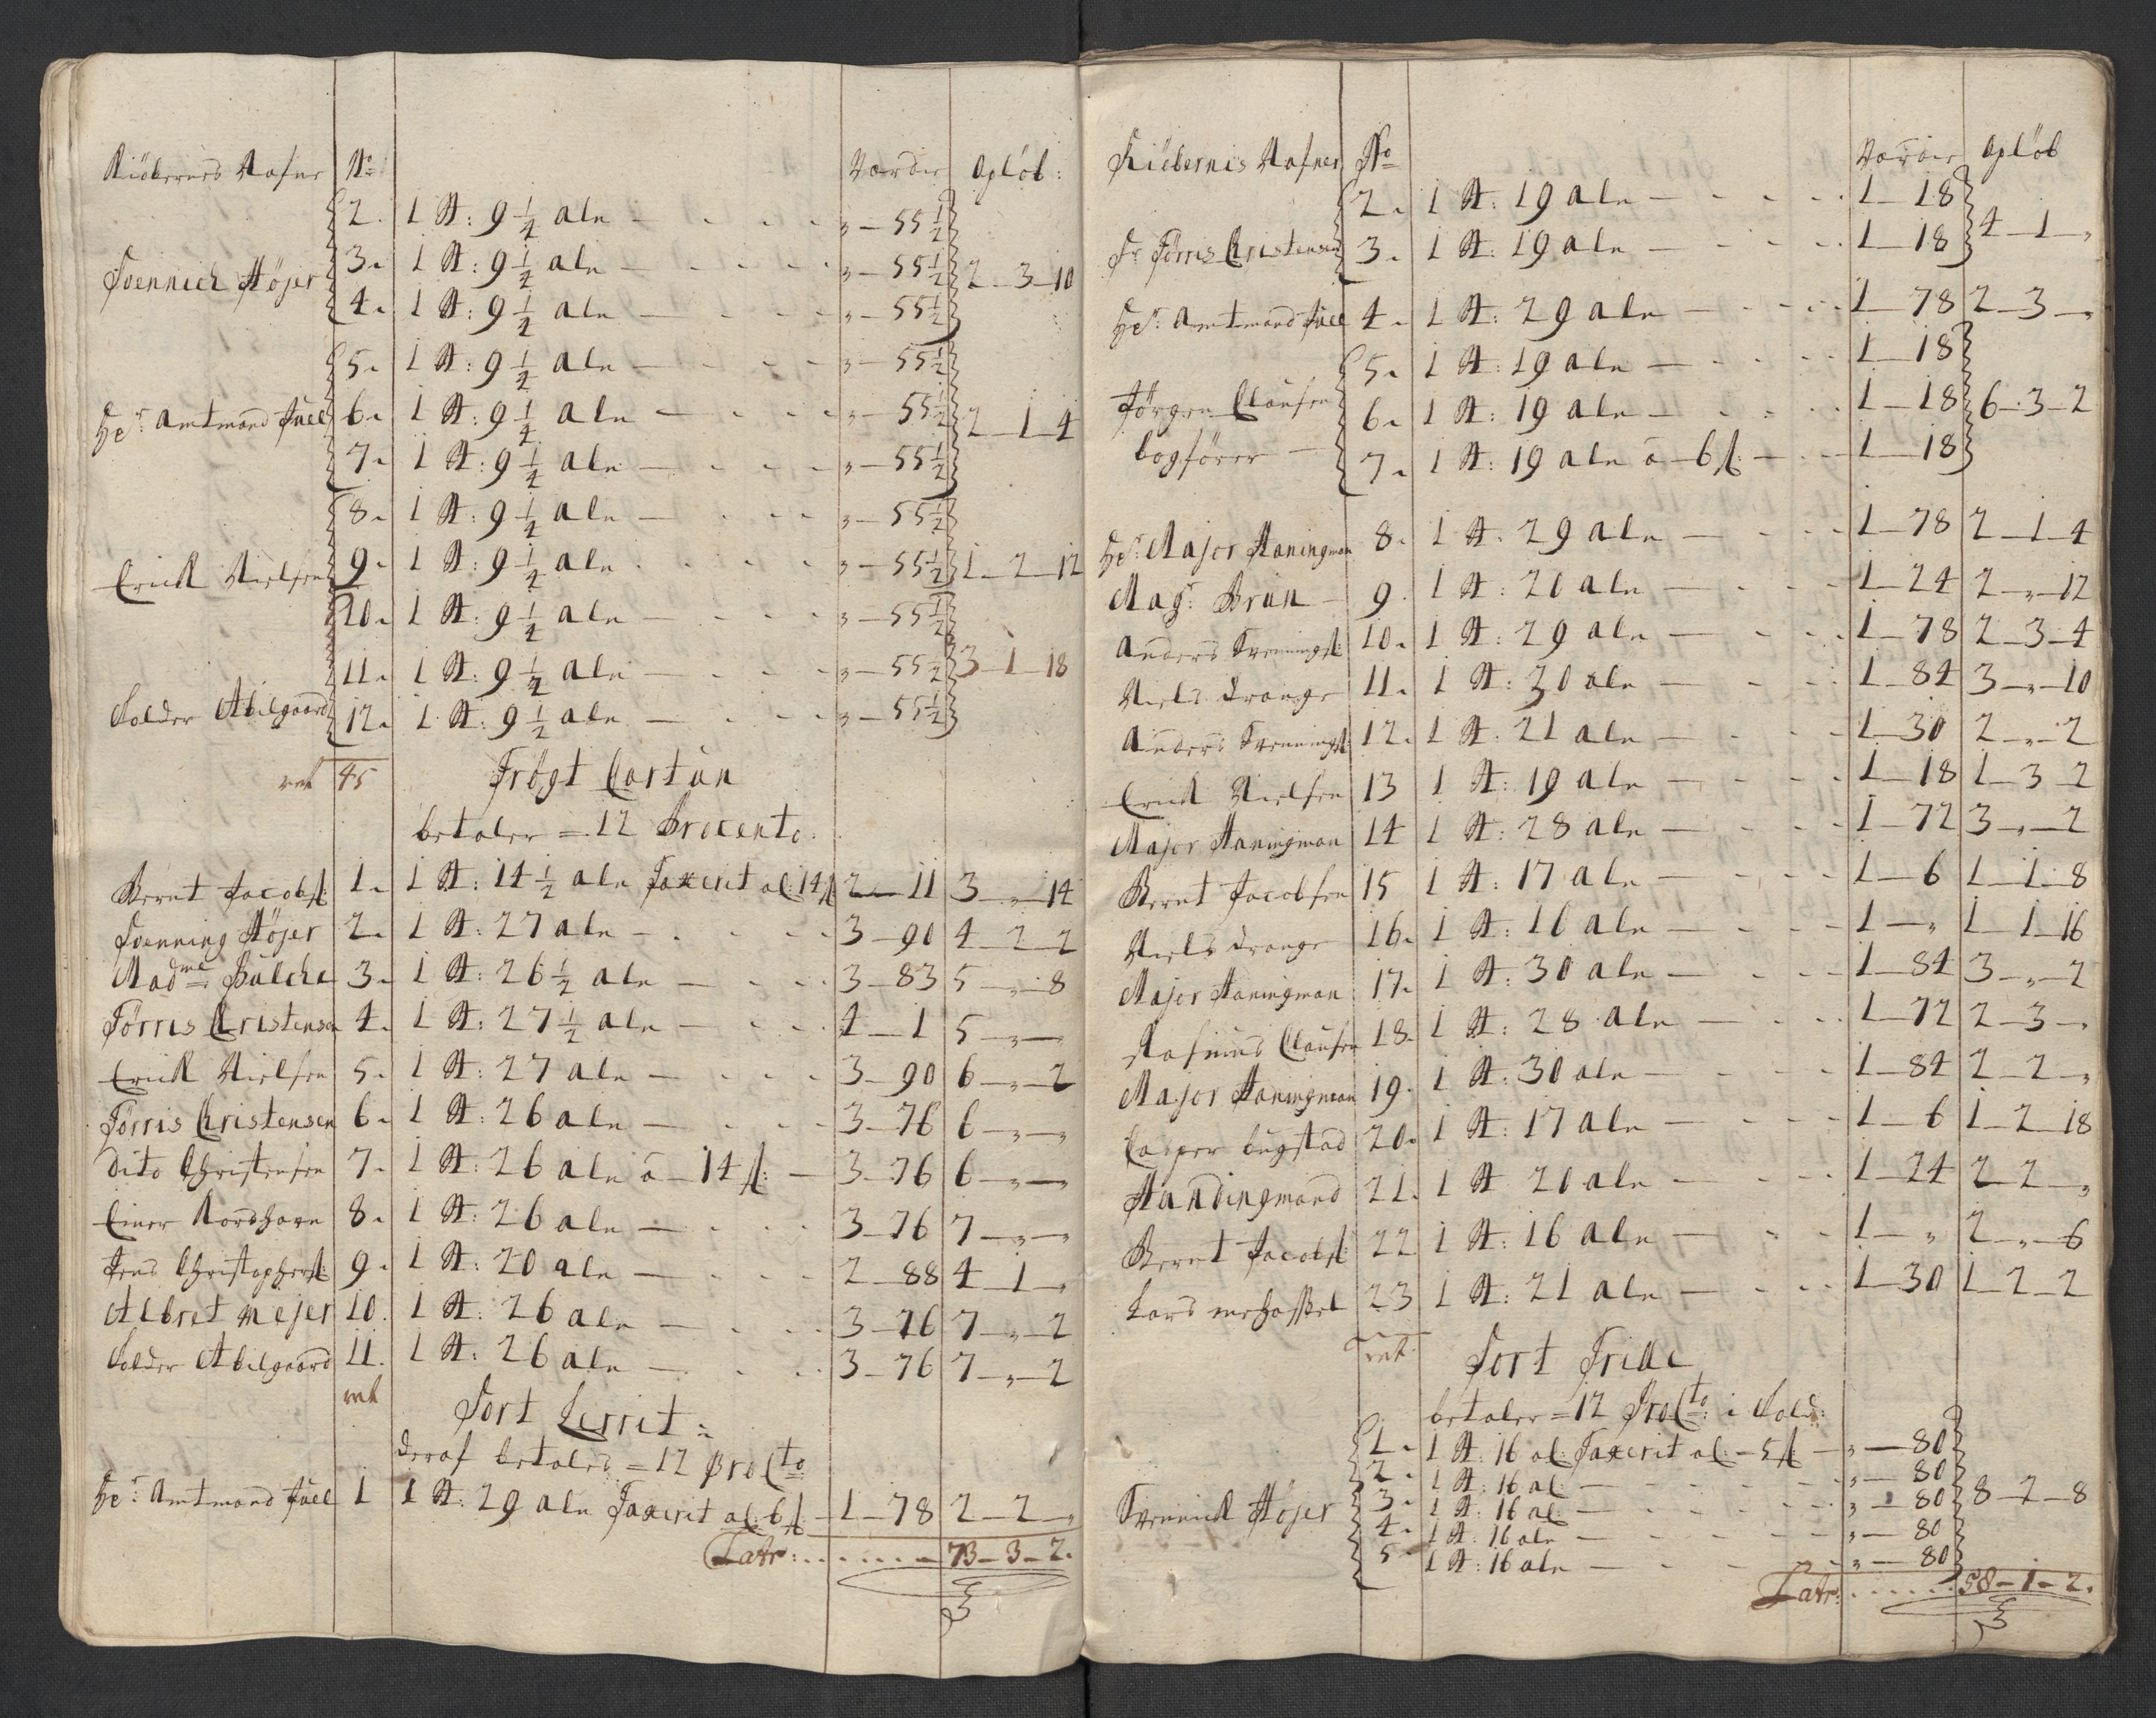 Kiöbernes Nafne No Værdie Opløb:
2. 1 St: 9 1/4 aln — „—55 1/2
Svennich Höjer 3. 1 St: 9 1/4 aln — „—55 1/2 2—3—10
4. 1 St: 9 1/4 aln — „—55 1/2
5. 1 St: 9 1/4 aln — „—55 1/2
Hr: Amtmand Juel 6. 1 St: 9 1/4 aln — „—55 1/2 2—1—4
7. 1 St: 9 1/4 aln — „—55 1/2
8. 1 St: 9 1/4 aln — „—55 1/2
Erick Nielsen 9. 1 St: 9 1/4 aln — „—55 1/2 1—2—12
10. 1 St: 9 1/4 aln — „—55 1/2
11. 1 St: 9 1/4 aln — „—55 1/2 3—1—18
Solder Abilgaard 12. 1 St: 9 1/2 aln — „—55 1/2
45 Trögt Cartun
betaler = 12 Procento.
Bernt Jacobs: 1. 1 St: 14 1/2 aln Taxerit al: 14 s 2—11 3—„—14
Svenning Höjer 2. 1 St: 27 aln — 3—90 4—2—2
Madme: Bülche 3. 1 St: 26 1/2 aln — 3—83 5—„—8
Törris Christensen 4. 1 St: 27 1/2 aln — 4—1 5—„—„
Erick Nielsen 5. 1 St: 27 aln — 3—90 6—„—2
Törris Christensen 6. 1 St: 26 aln — 3—76 6—„—„
Dito Christensen 7. 1 St: 26 aln a 14 s: — 3—76 6—„—„
Einer Nordhavn 8. 1 St: 26 aln — 3—76 7—„—„
Jens Christophers: 9. 1 St: 20 aln — 2—88 4—1—„
Albret Mejer 10. 1 St: 26 aln — 3—76 7—„—2
Solder Abilgaard 11. 1 St: 26 aln — 3—76 7—„—2
Sort Lerrit:
deraf betales = 12 Procto
Hr: Amtmand Juel 1 1 St: 29 aln Taxerit al: 6 s: 1—78 2—2—„
Latr: 73—3—2.
Kiöbernis Nafner No Værdie Opløb
2. 1 St: 19 aln — 1—18
Sr Törris Christensen 3. 1 St: 19 aln — 1—18 4—1—„
Hr: Amtmand Juel 4. 1 St: 29 aln — 1—78 2—3—„
5. 1 St: 19 aln — 1—18
Jörgen Clausen 6. 1 St: 19 aln — 1—18 6—3—2
bogförer — 7. 1 St: 19 aln a 6 s: — 1—18
Hr: Major Haningman 8. 1 St: 29 aln — 1—78 2—1—4
Magr: Brun — 9. 1 St: 20 aln — 1—24 2—„—12
Anders Svennings: 10. 1 St: 29 aln — 1—78 2—3—4
Niels Drange 11. 1 St: 30 aln — 1—84 3—„—10
Anders Svennings: 12. 1 St: 21 aln — 1—30 2—„—2
Erick Nielsen 13 1 St: 19 aln — 1—18 1—3—2
Major Haningman 14 1 St: 28 aln — 1—72 3—„—2
Bernt Jacobsen 15 1 St: 17 aln — 1—6 1—1—8
Niels Drange 16. 1 St: 16 aln — 1—„ 1—1—16
Major Haningman 17. 1 St: 30 aln — 1—84 3—„—2
Clausen 18. 1 St: 28 aln — 1—72 2—3—„
Major Haningman 19. 1 St: 30 aln — 1—84 2—2—„
Casper Bugstad 20. 1 St: 17 aln — 1—6 1—2—18
Handingmand 21. 1 St: 20 aln — 1—24 2—2—„
Bernt Jacobs: 22 1 St: 16 aln — 1—„ 2—„—6
Lars 23 1 St: 21 aln — 1—30 1—2—2
Sort Frise
betaler = 12 Procto: i Told:
1. 1 St: 16 al: Taxerit al: 5 s — „—80
2. 1 St: 16 al: — „—80
Svennich Höjer 3. 1 St: 16 al: — „—80 8—2—8
4. 1 St: 16 aln — „—80
5 1 St: 16 aln — „—80
Latr: 58—1—2.